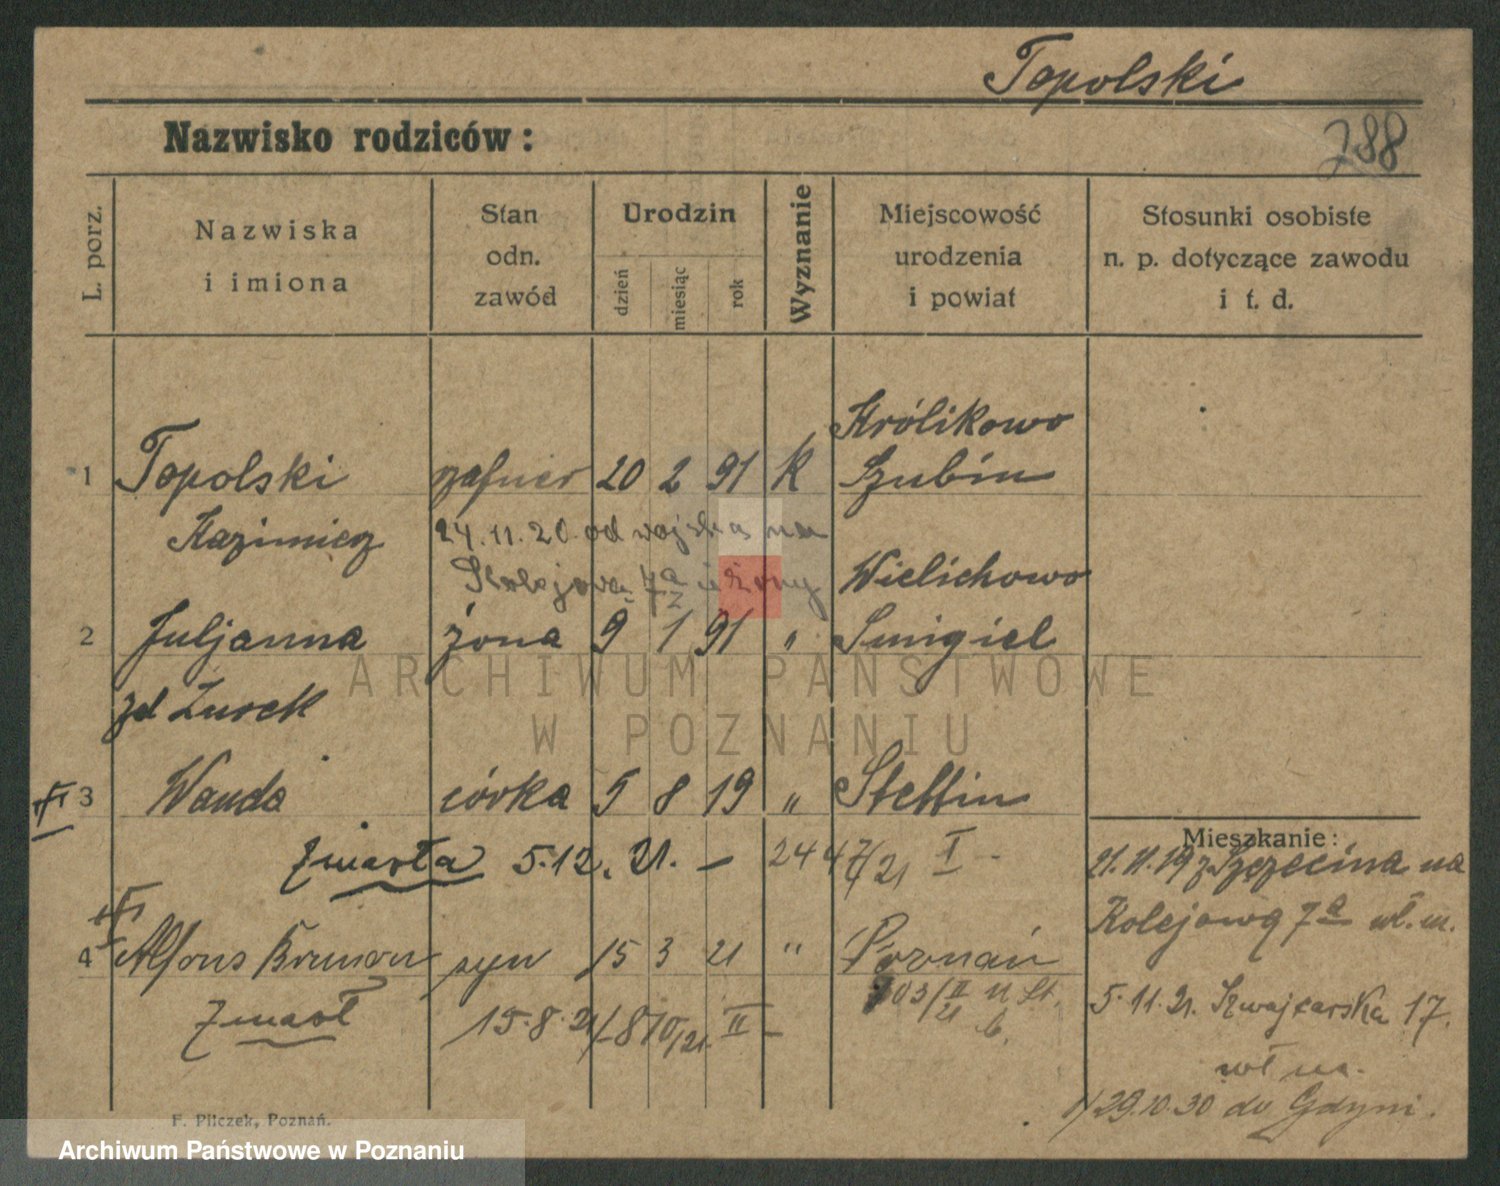 Topolski
Nazwisko rodziców:
788
L. porz.
Nazwiska
i imiona
Stan
odn.
zawód
Urodzin
dzień
miesiąc
rok
Wyznanie
Miejscowość
urodzenia
i powiat
Stosunki osobiste
n. p. dotyczące zawodu
i t. d.
Królikowo
1 Topolski 20 2 91 K Szubin
Kazimierz 24.11.20 od wojska na
Kolejowa 7a żony Wielichowo
2 Juljanna żona 9 1 91 " Smigiel
zd Żurek
3 Wanda córka 5 8 19 " Stettin
zmarła 5.12.21. – 2447/21 I –
4 Alfons Brunon syn 15 3 21 " Poznań
zmarł 15.8.21 1870/21 II –
Mieszkanie:
21.11.19 z Szczecina na
Kolejową 7a wł. m.
5.11.21. Szwajcarska 17.
wł na.
29.10.30 do Gdyni.
F. Pilczek, Poznań.
ARCHIWUM PAŃSTWOWE
W POZNANIU
Archiwum Państwowe w Poznaniu